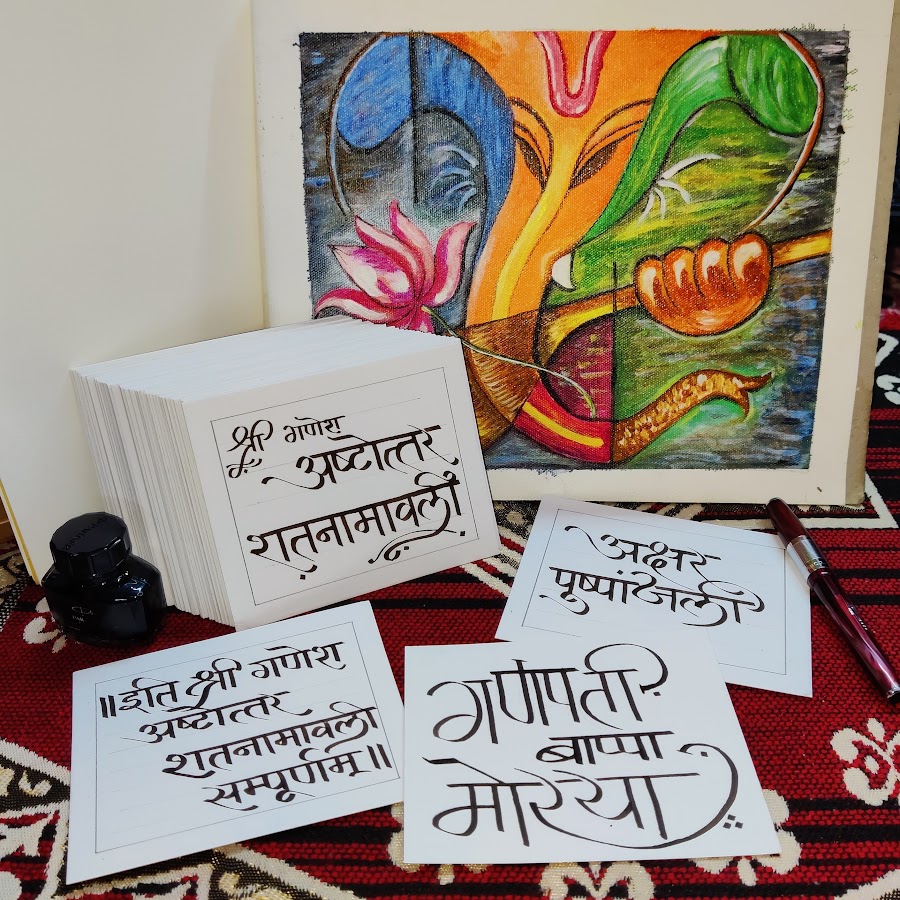 श्री गणेश
अष्टोत्तर
शतनामावली
अक्षर
पुष्पांजली
॥इति श्री गणेश
अष्टोत्तर
शतनामावली
सम्पूर्णम्॥
गणपती
बाप्पा
मोरया